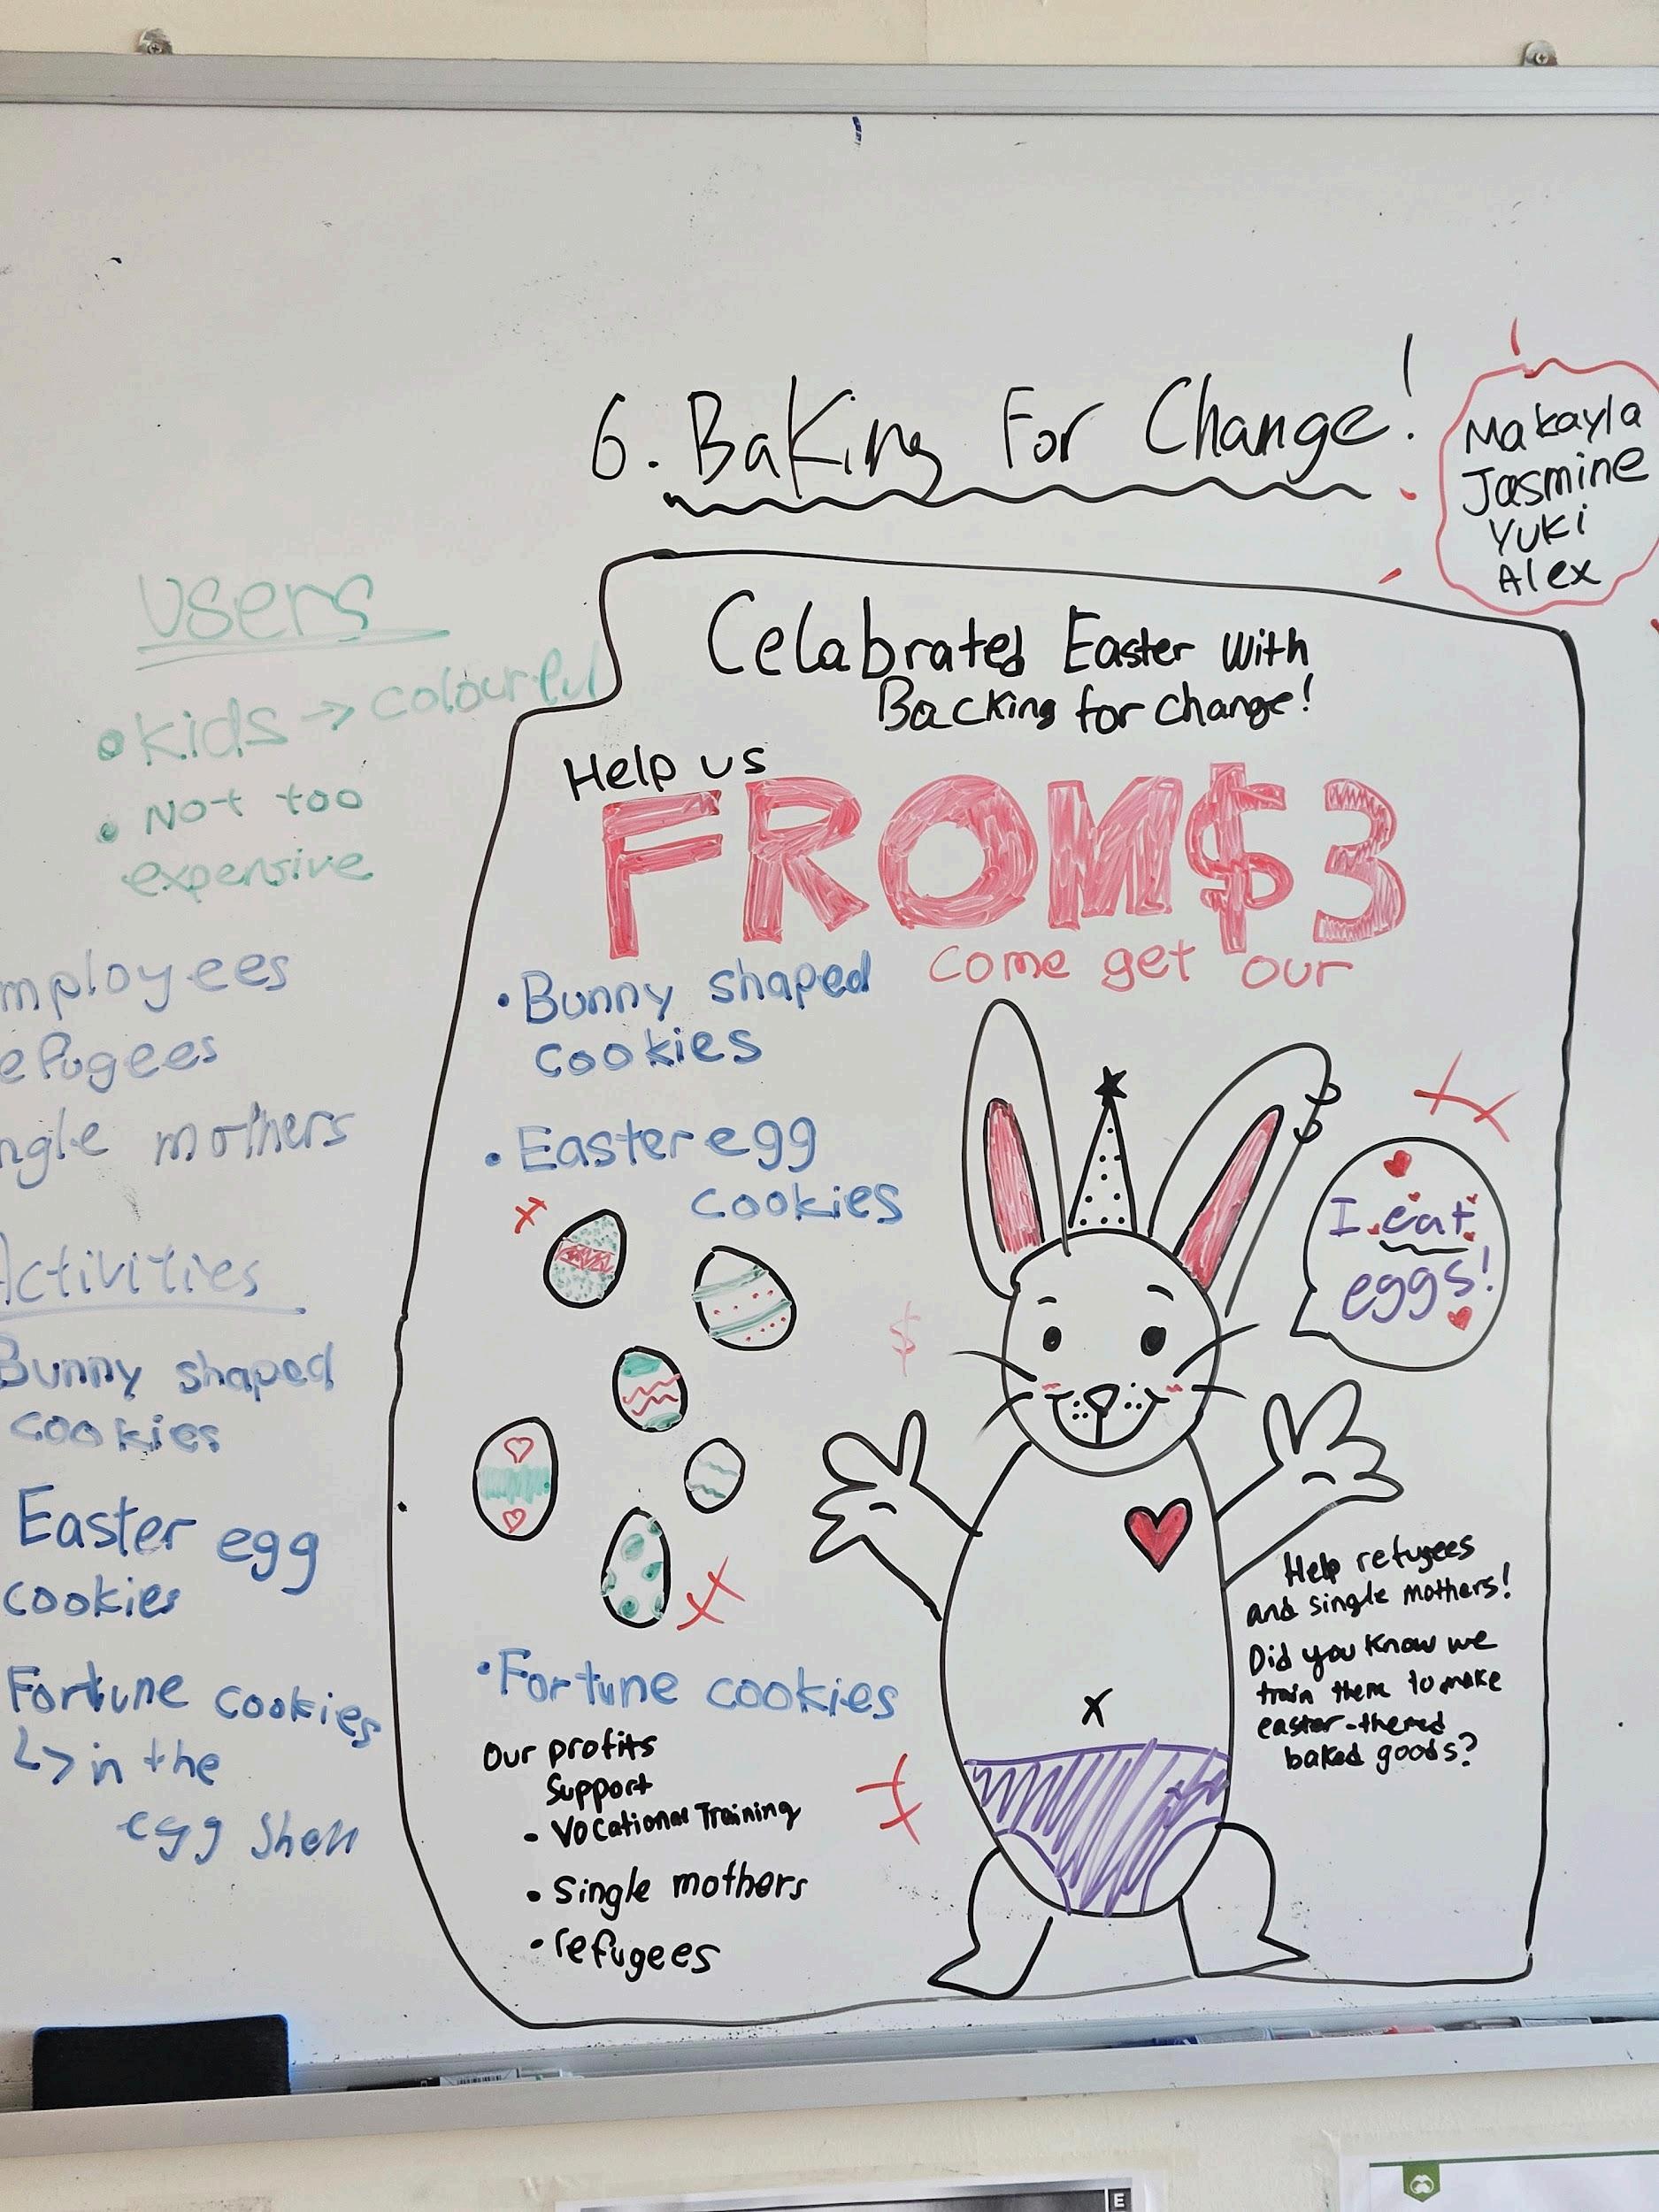 6. Baking For Change!
Makayla
Jasmine
Yuki
Alex
Users
• Kids → colourful
• Not too
expensive
mployees
efugees
ngle mothers
Activities
Bunny shaped
cookies
Easter egg
cookies
Fortune cookies
↳ in the
egg shell
Celabrated Easter With
Backing for change!
Help us
FROM $3
come get our
• Bunny shaped
cookies
• Easter egg
cookies
$
I eat
eggs!
• Fortune cookies
Our profits
Support
• Vocational Training
• Single mothers
• refugees
Help refugees
and single mothers!
Did you know we
train them to make
easter-themed
baked goods?
E